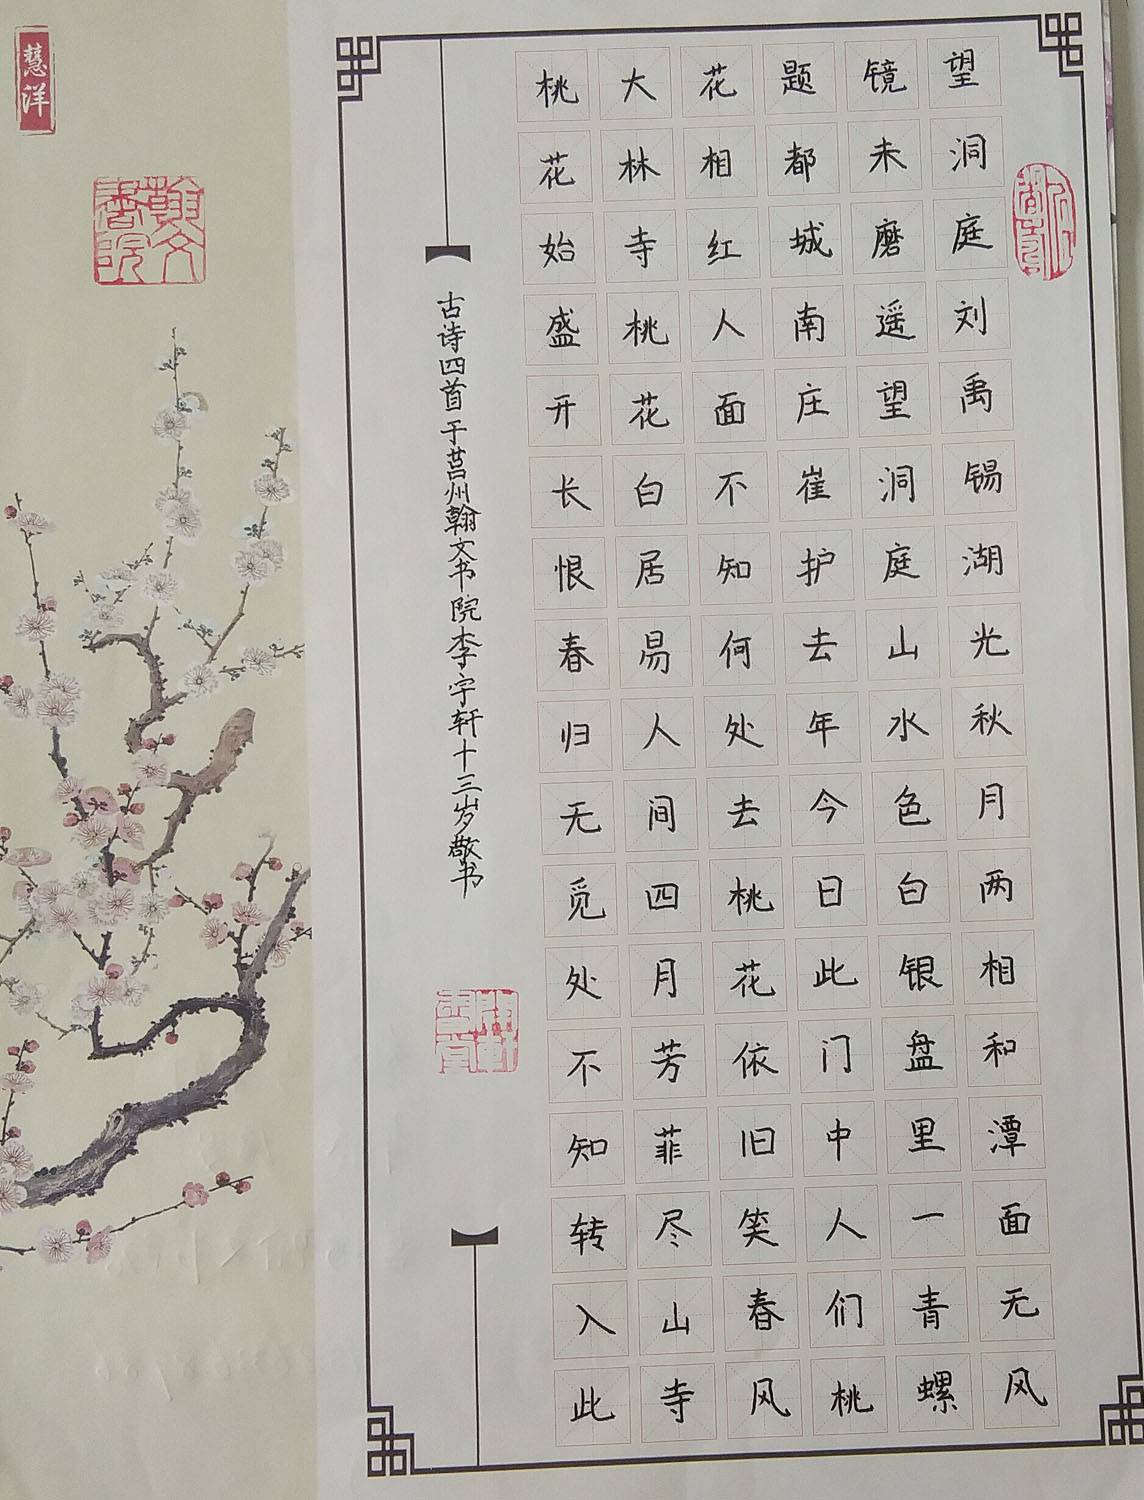 望洞庭刘禹锡湖光秋月两相和潭面无风
镜未磨遥望洞庭山水色白银盘里一青螺
题都城南庄崔护去年今日此门中人们桃
花相红人面不知何处去桃花依旧笑春风
大林寺桃花白居易人间四月芳菲尽山寺
桃花始盛开长恨春归无觅处不知转入此
古诗四首于莒州翰文书院李宇轩十三岁敬书
慧洋
翰文書院